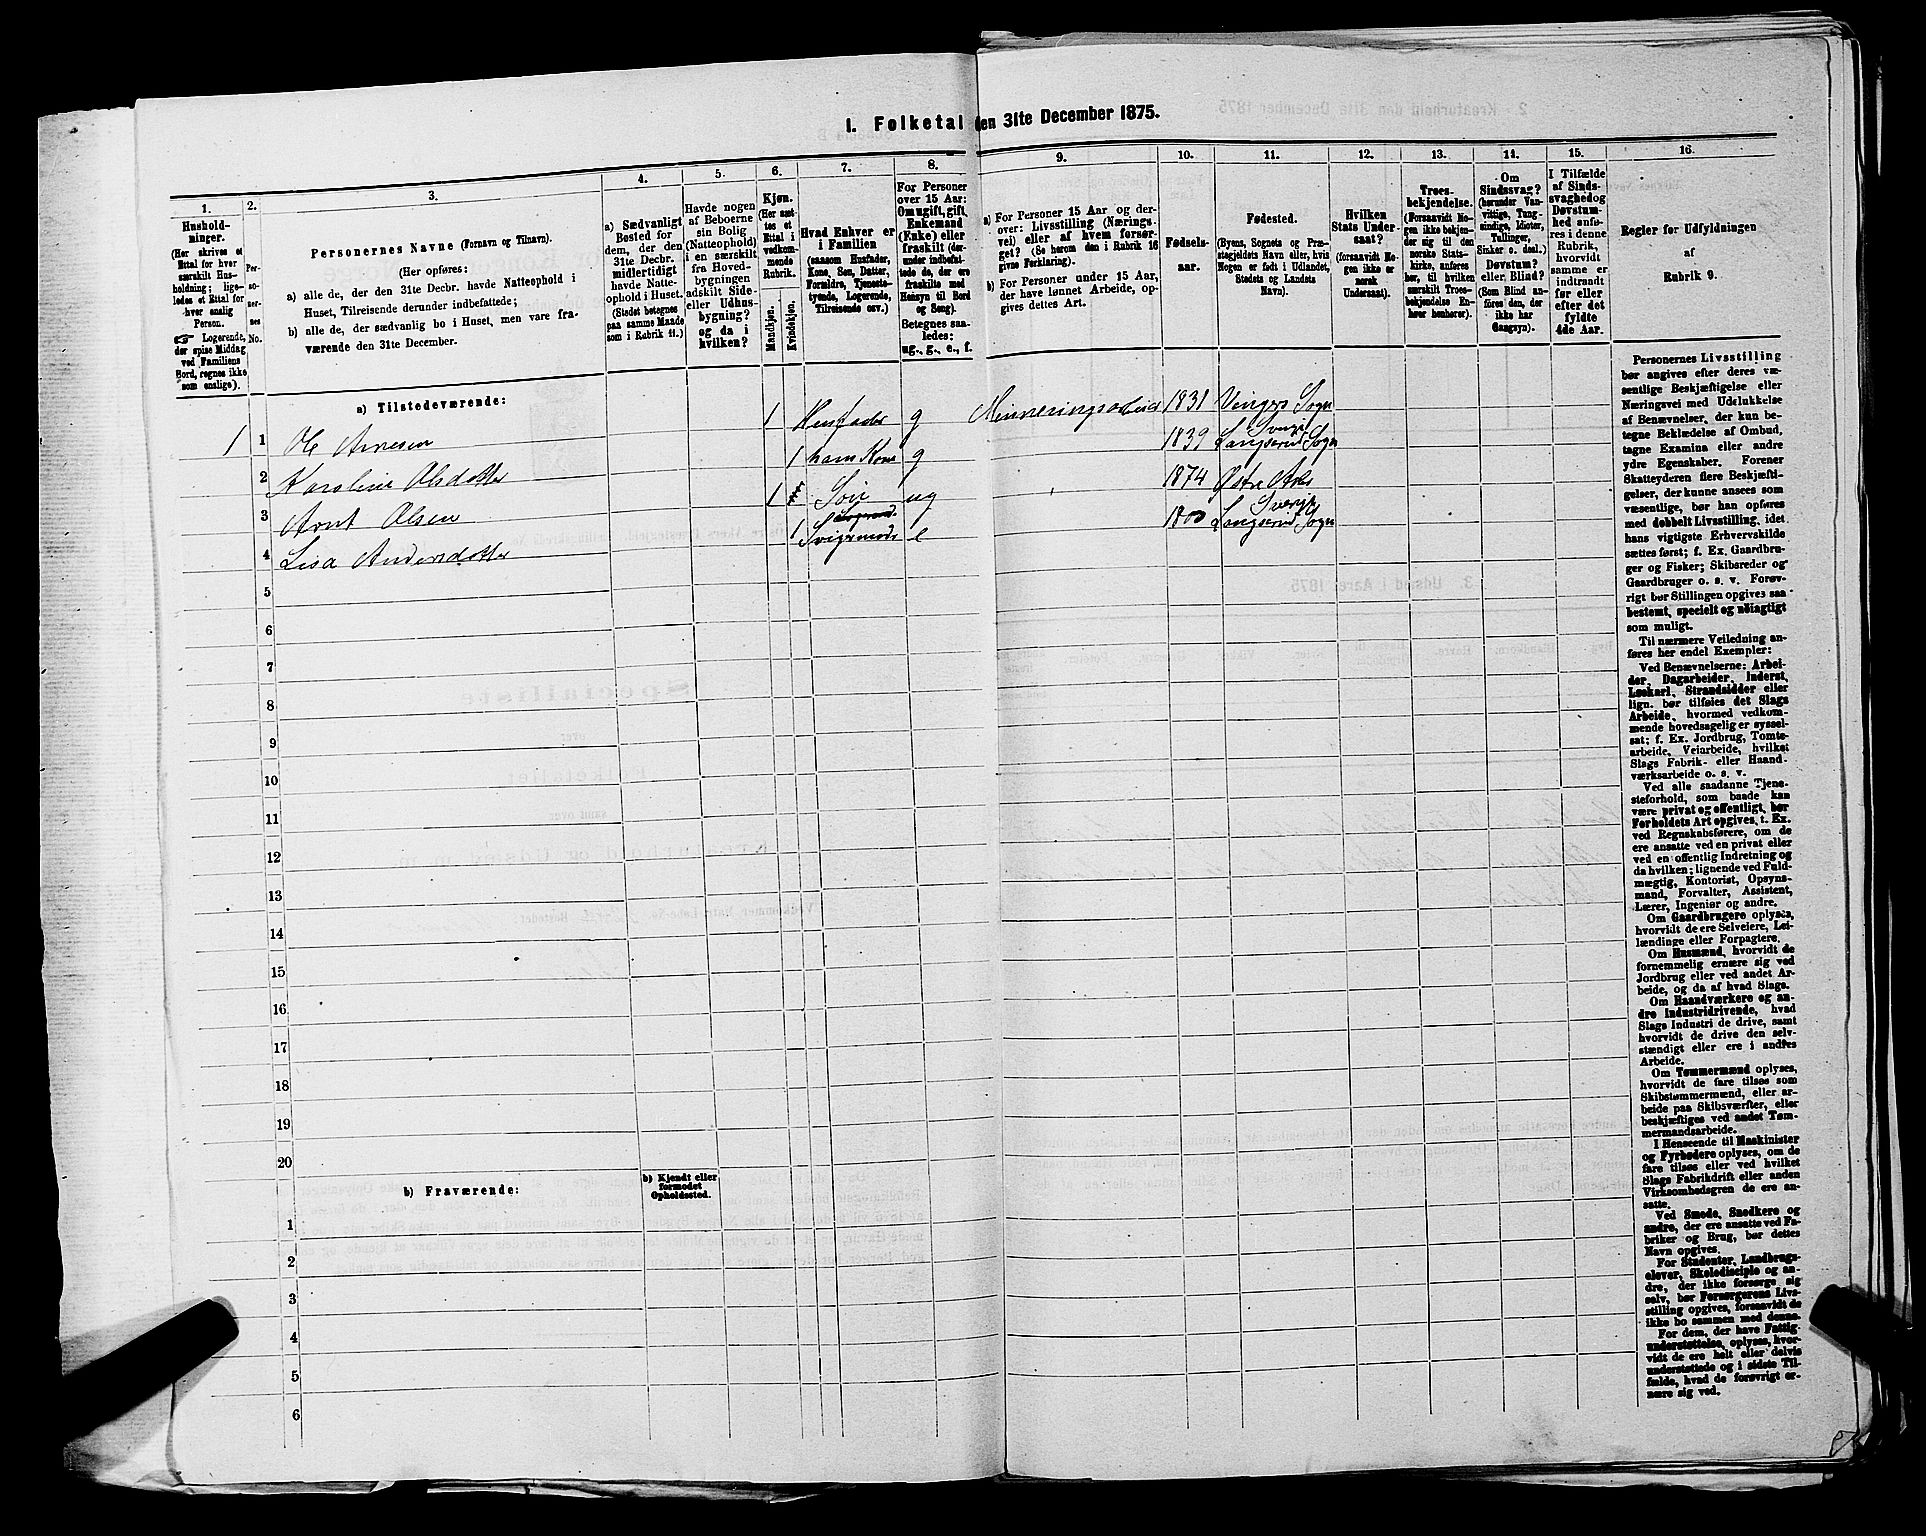 1. Folketal den 31te December 1875.
1. 2. 3. 4. 5. 6. 7. 8. 9. 10. 11. 12. 13. 14. 15. 16.
Hushold-
ninger.
(Her skrives et
Ettal for hver
særskilt Hus-
holdning; lige-
ledes et Ettal for
hver enslig
Person.
☞ Logerende,
der spise Middag
ved Familiens
Bord, regnes ikke
som enslige).
Per-
so-
ner-
nes
No.
Personernes Navne (Fornavn og Tilnavn).
(Her opføres:
a) alle de, der den 31te Decbr. havde Natteophold i
Huset, Tilreisende derunder indbefattede;
b) alle de, der sædvanlig bo i Huset, men vare fra-
værende den 31te December.
a) Sædvanligt
Bosted for
dem, der den
31te Decbr.
midlertidigt
havde Natte-
ophold i Huset.
(Stedet betegnes
paa samme Maade
som i Rubrik 11.)
Havde nogen
af Beboerne
sin Bolig
(Natteophold)
i en særskilt
fra Hoved-
bygningen
adskilt Side-
eller Udhus-
bygning?
og da i
hvilken?
Kjøn.
(Her sæt-
tes et
Ettal i
vedkom-
mende
Rubrik.
Mandkjøn.
Kvindekjøn.
Hvad Enhver er
i Familien
(saasom Husfader,
Kone, Søn, Datter,
Forældre, Tjeneste-
tyende, Logerende,
Tilreisende osv.)
For Personer
over 15 Aar:
Om ugift, gift,
Enkemand
(Enke) eller
fraskilt (der-
under indbefat-
tede de, der ere
fraskilte med
Hensyn til Bord
og Seng).
Betegnes saa-
ledes:
ug., g., e., f.
a) For Personer 15 Aar og der-
over: Livsstilling (Nærings-
vei) eller af hvem forsør-
get? (Se herom den i Rubrik 16
givne Forklaring).
b) For Personer under 15 Aar,
der have lønnet Arbeide, op-
gives dettes Art.
Fødsels-
aar.
Fødested.
(Byens, Sognets og Præ-
stegjeldets Navn eller, hvis
Nogen er født i Udlandet,
Stedets og Landets
Navn).
Hvilken
Stats Under-
saat?
(forsaavidt No-
gen ikke er
norsk
Undersaat).
Troes-
bekjendelse.
(Forsaavidt No-
gen ikke bekjen-
der sig til den
norske Stats-
kirke, anføres
her, til hvilken
særskilt Troes-
bekjendelse En-
hver henhører).
Om
Sindssvag?
(herunder Van-
vittige, Tung-
sindige, Idioter,
Tullinger,
Sinker o. desl.)
Døvstum?
eller Blind?
(Som Blind an-
føres den, der
ikke har
Gangsyn).
I Tilfælde
af Sinds-
svaghed og
Døvstum-
hed anfø-
res i denne
Rubrik,
hvorvidt
samme er
indtraadt
før eller
efter det
fyldte
4de Aar.
Regler for Udfyldningen
af
Rubrik 9.
a) Tilstedeværende:
1 1 Ole Arnesen 1 Husfader g Minneringsarbeid 1831 Vingers Sogn
2 Karoline Olsdatter 1 hans Kone g 1839 Langserud Sverige Sogn
3 Arnt Olsen 1 Søn ug 1874 Østre Aker
4 Lisa Andersdatter 1 Svigermoder e 1800 Langserud Sverige Sogn
5
6
7
8
9
10
11
12
13
14
15
16
17
18
19
20
b) Fraværende:
b) Kjendt eller
formodet
Opholdssted.
1
2
3
4
5
6
Personernes Livsstilling
bør angives efter deres væ-
sentlige Beskjæftigelse eller
Næringsvei med Udelukkelse
af Benævnelser, der kun be-
tegne Beklædelse af Ombud,
tagne Examina eller andre
ydre Egenskaber. Forener
Skatteyderen flere Beskjæfti-
gelser, der kunne ansees som
væsentlige, bør han opføres
med dobbelt Livsstilling, idet
hans vigtigste Erhvervskilde
sættes først; f. Ex. Gaardbru-
ger og Fisker; Skibsreder og
Gaardbruger o. s. v. Forøv-
rigt bør Stillingen opgives saa
bestemt, specielt og nøiagtigt
som muligt.
Til nærmere Veiledning an-
føres her endel Exempler:
Ved Benævnelserne: Arbei-
der, Dagarbeider, Inderst,
Løskarl, Strandsidder eller
lign. bør tilføies det Slags
Arbeide, hvormed vedkom-
mende hovedsagelig er syssel-
sat; f. Ex. Jordbrug, Tomte-
arbeide, Veiarbeide, hvilket
Slags Fabrik- eller Haand-
værksarbeide o. s. v.
Ved alle saadanne Tjene-
steforhold, som baade kan
være privat og offentligt, bør
Forholdets Art opgives, t. Ex.
ved Regnskabsførere, om de
ere ansatte ved en privat eller
ved en offentlig Indretning og
da hvilken; lignende ved Fuld-
mægtig, Kontorist, Opsyns-
mand, Forvalter, Assistent,
Lærer, Ingeniør og andre.
Om Gaardbrugere oplyses,
hvorvidt de ere Selveiere, Lei-
lændinge eller Forpagtere.
Om Husmænd, hvorvidt de
fornemmelig ernære sig ved
Jordbrug eller ved andet Ar-
beide, og da af hvad Slags.
Om Haandværkere og an-
dre Industridrivende, hvad
Slags Industri de drive, samt
hvorvidt de drive den selv-
stændigt eller ere i andres
Arbeide.
Om Tømmermænd oplyses,
hvorvidt de fare tilsøs som
Skibstømmermænd, eller ar-
beide paa Skibsværfter, eller
beskjæftiges ved andet Tøm-
mermandsarbeide.
I Henseende til Maskinister
og Fyrbødere oplyses, om de
fare tilsøs eller ved hvilket
Slags Fabrikdrift eller anden
Virksomhedsgren de ere an-
satte.
Ved Smede, Snedkere og
andre, der ere ansatte ved Fa-
briker og Brug, bør dettes
Navn opgives.
For Studenter, Landbrugs-
elever, Skoledisciple og an-
dre, der ikke forsørge sig
selv, bør Forsørgerens Livs-
stilling opgives, forsaavidt de
ikke bo sammen med denne.
For dem, der have Fattig-
understøttelse, oplyses, hvor-
vidt de ere helt eller delvis
understøttede og i sidste Til-
fælde, hvad de forøvrigt er-
nære sig ved.